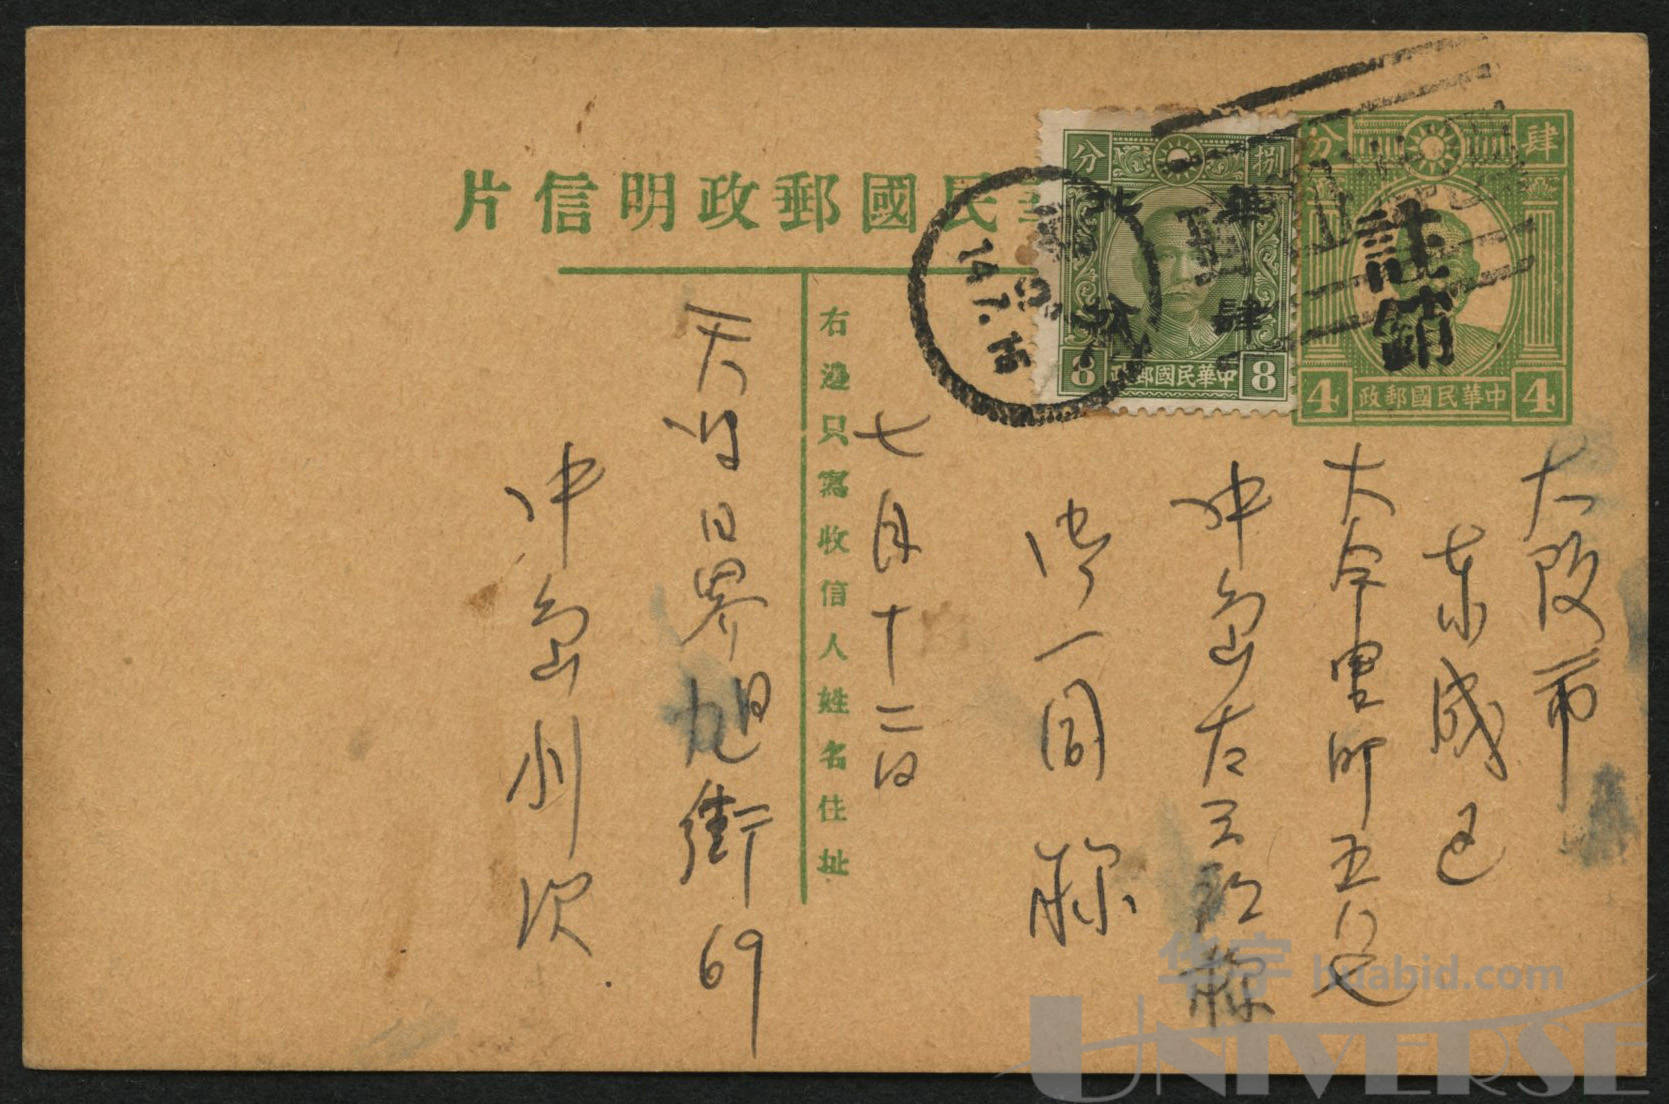 片信明政郵國民
分 捌
華北
肆分
8 政郵國民華中 8
分 肆
註銷
4 政郵國民華中 4
14.7.15
右邊只寫收信人姓名住址
大阪市
東成區
大今里町五
中島
御一同様
七月十二日
天津日界旭街69
中島州次
华宇 huabid.com
UNIVERSE